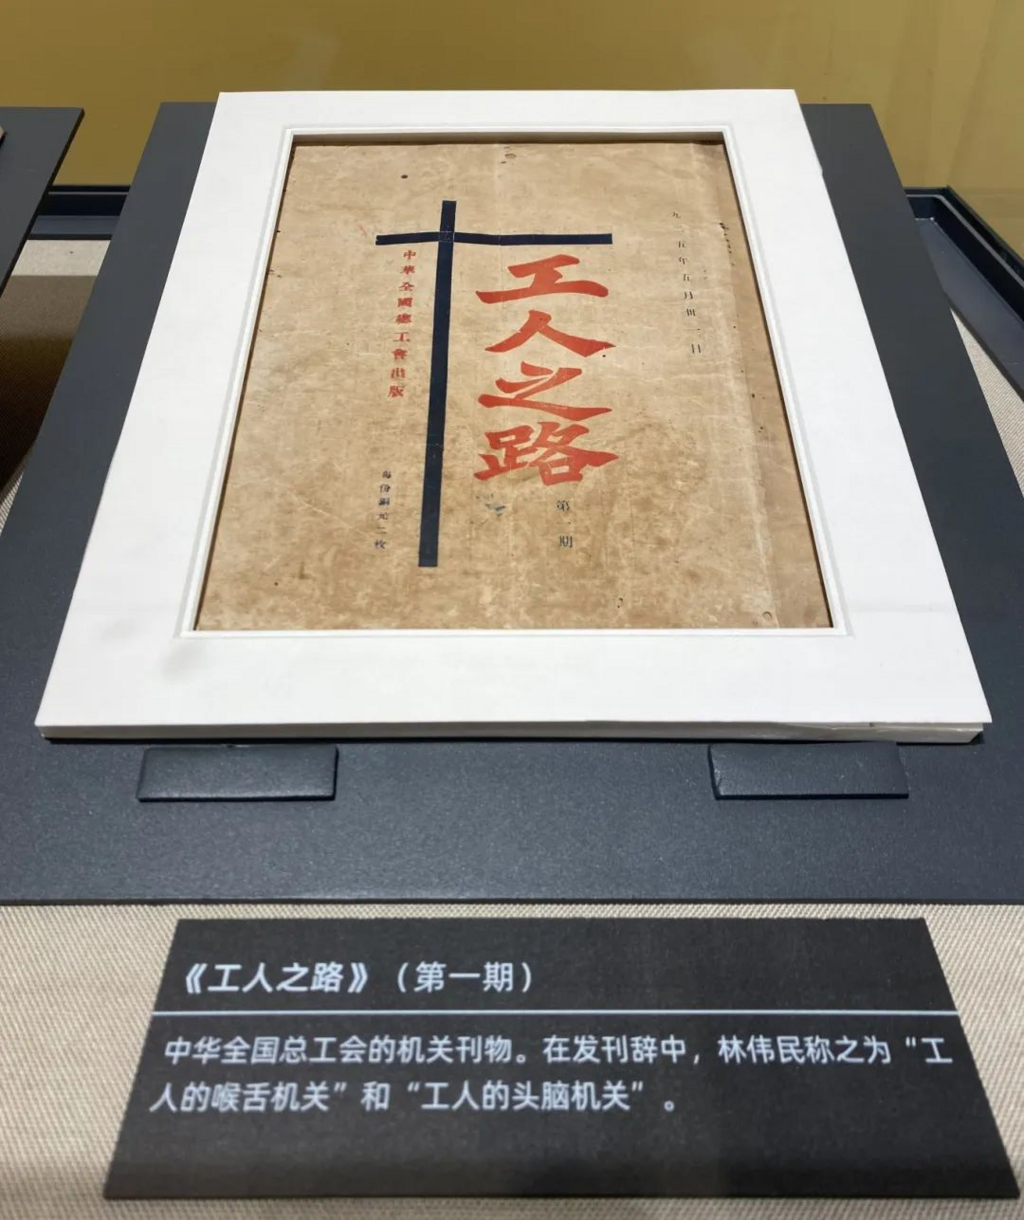 九二五年五月卅一日
工人之路
第一期
中華全國總工會出版
每份銅元二枚
《工人之路》（第一期）
中华全国总工会的机关刊物。在发刊辞中，林伟民称之为“工
人的喉舌机关”和“工人的头脑机关”。